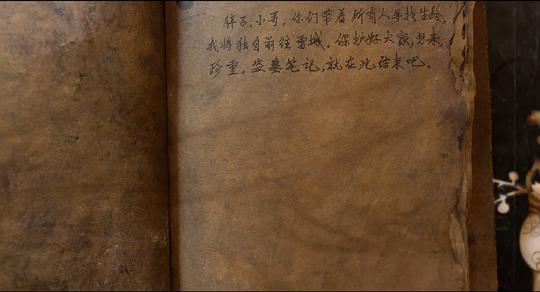 胖子,小哥,你们带着所有人寻找生路,
我将独自前往雪城。保护好大家,勿来
珍重。盗墓笔记,就在此结束吧。